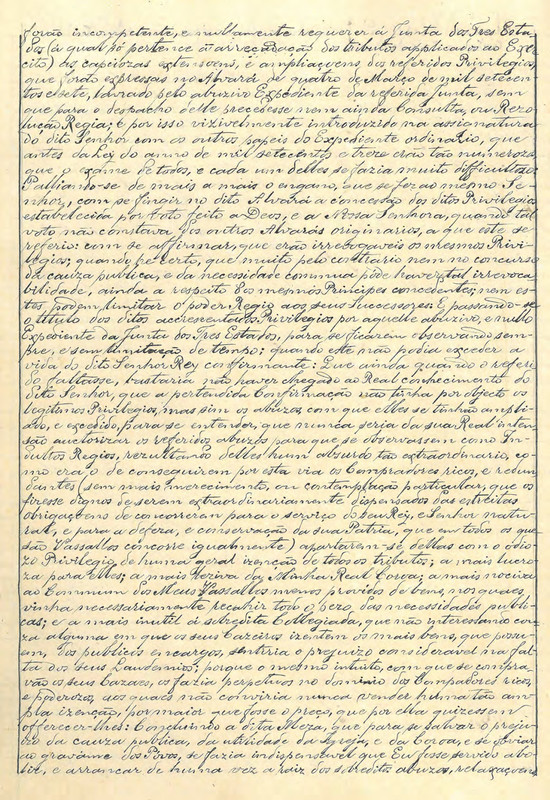 forão incompetente, e nullamente requerer á Junta dos Tres Esta-
dos (á qual só pertence a arrecadação dos tributos applicados ao Exer-
cito) as capciozas extensoens, e ampliaçoens dos referidos Privilegios,
que forão expressas no Alvará de quatro de Março de mil setecen-
tos e sete, lavrado pelo abuzivo Expediente da referida Junta, sem
que para o despacho delle precedesse nem ainda Consulta, ou Rezo-
lução Regia; e por isso vizivelmente introduzido na assignatura
do dito Senhor com os outros papeis do Expediente ordinario, que
antes da Ley do anno de mil setecentos e treze erão tão numerozos,
que o exame de todos, e cada um delles se fazia muito difficultozo:
Palliando-se de mais a mais o engano, que se fez ao mesmo Se-
nhor, com se fingir no dito Alvará a concessão dos ditos Privilegios
estabelecida por Voto feito a Deos, e a Nossa Senhora, quando tal
voto não constava dos outros Alvarás originarios, a que este se
referio: com se affirmar, que erão irrevogaveis os mesmos Privi-
legios; quando he certo, que muito pelo contrario nem no concurso
da cauza publica, e da necessidade commua póde haver tal irrevoca-
bilidade, ainda a respeito dos mesmos Principes concedentes; nem es-
tes podem limitar o poder Regio aos seus Successores: E passando-se
o titulo dos ditos accrescentados Privilegios por aquelle abuzivo, e nullo
Expediente da Junta dos Tres Estados, para se ficarem observando sem-
pre, e sem limitação de tempo; quando este não podia exceder a
vida do dito Senhor Rey confirmante: Que ainda quando o referi-
do faltasse, bastaria não haver chegado ao Real conhecimento do
dito Senhor, que a pertendida Confirmação não tinha por objecto os
legitimos Privilegios, mas sim os abuzos, com que elles se tinhão ampli-
ado, e excedido, para se entender, que nunca seria da sua Real inten-
são auctorizar os referidos abuzos para que se observassem como In-
dultos Regios, rezultando delles hum absurdo tão extraordinario, co-
mo era o de conseguirem por esta via os Compradores ricos, e redun-
dantes (sem mais merecimento, ou contemplação particular, que os
fizesse dignos de serem extraordinariamente dispensados das estreitas
obrigaçoens de concorrerem para o serviço do seu Rey, e Senhor natu-
ral, e para a defeza, e conservação da sua Patria, que em todos os que
são Vassallos concorre igualmente) apartarem-se dellas com o odio-
zo Privilegio de huma geral izenção de todos os tributos; a mais lucro-
za para elles; a mais leziva da Minha Real Coroa; a mais nociva
ao Commum dos Meus Vassallos menos providos de bens, nos quaes
vinha necessariamente recahir todo o pezo das necessidades publi-
cas; e a mais inutil á sobredita Collegiada, que não interessando cou-
za alguma em que os seus Cazeiros izentem os mais bens, que possu-
em, dos publicos encargos, sentiria o prejuizo consideravel na fal-
ta dos seus Laudemios; porque o mesmo intuito, com que se compra-
vão os seus Cazaes, os fazia perpetuos no dominio dos Compradores ricos,
e poderozos, aos quaes não conviria nunca vender huma tão am-
pla izenção, por maior que fosse o preço, que por ella quizessem
offerecer-lhes: Concluindo a dita Meza, que para se salvar o prejui-
zo da cauza publica, da utilidade da Igreja, e da Coroa, e se obviar
ao gravame dos Povos, se fazia indispensavel que Eu fosse servido abo-
lir, e arrancar de huma vez a raiz dos sobreditos abuzos, relaxaçoens